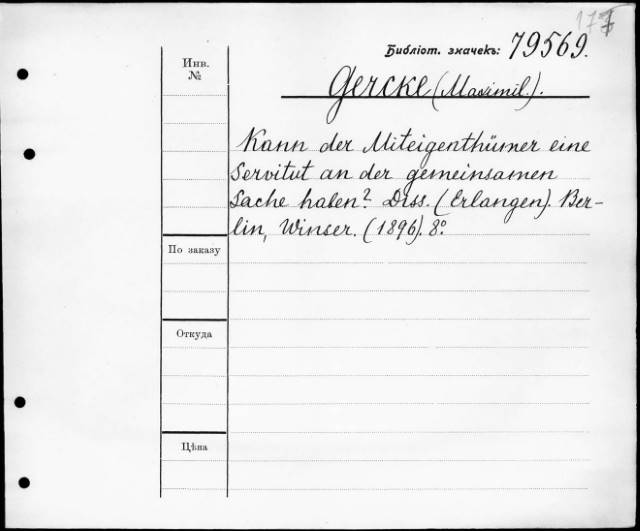 177
Библіот. значекъ: 79569.
Gercke (Maximil.).
Инв.
№
Kann der Miteigenthümer eine
Servitut an der gemeinsamen
Sache haben? Diss. (Erlangen). Ber-
lin, Winser. (1896). 8º.
По заказу
Откуда
Цѣна